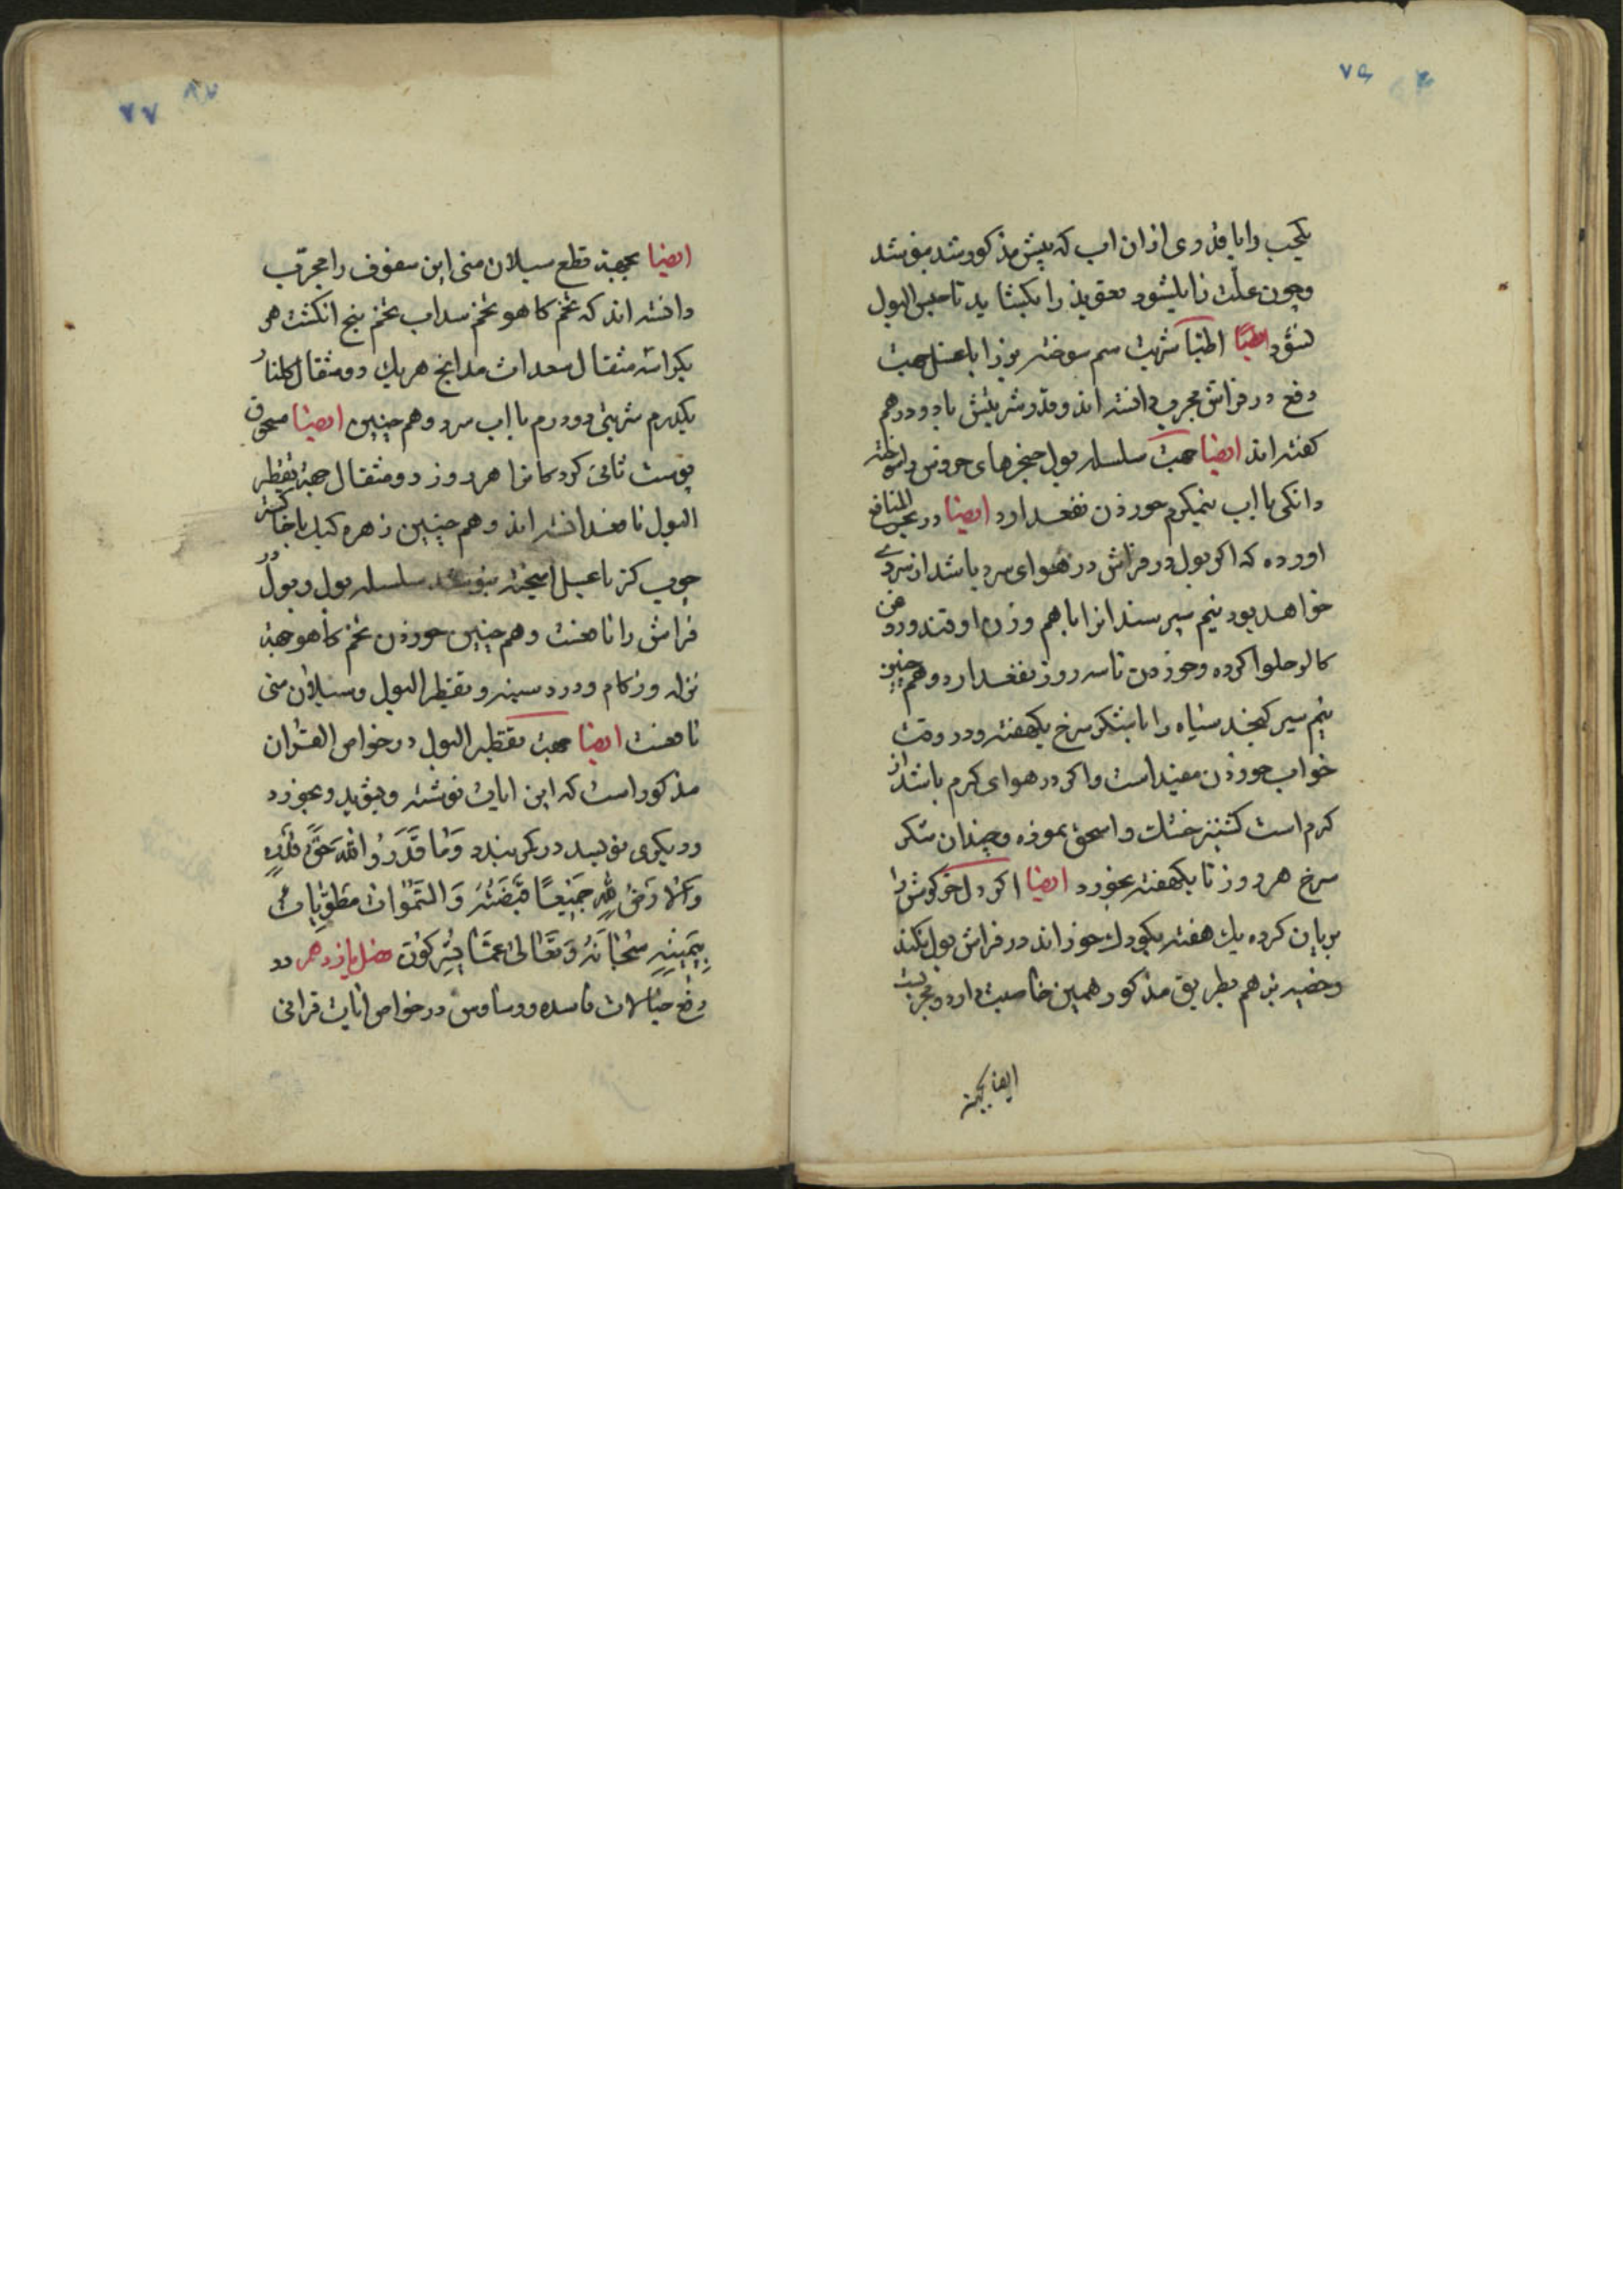 ۷۶
یکحب را با قدری از ان اب که پیش مذکور شد بنوشد
و چون علت زایلشود تعویذ را بکشاید تا حبس البول
نشود ایضا اطبا شربت سم سوخته بز را با عسل جهت
دفع در فراش مجرب دانسته اند و قدر شربتش تا دو درهم
کفته اند ایضا جهت سلسله بول حنجرهای خروس
دانکی با اب نیمکرم خوردن نفعدارد ایضا در بحر المنافع
اورده که اکر بول در فراش در هوای سرد باشد از سردی
خواهد بود نیم سیر سندانرا با هم وزن او قند و روغن
کاو حلوا کرده و خوردن تا سه روز نفعدارد و هم چنین
نیم سیر کنجد سیاه را با شکر سرخ یکهفته و در وقت
خواب خوردن مفید است و اکر در هوای کرم باشد از
کرم است کشنیز خشک را سحق نموده و چندان شکر
سرخ هر روز تا یکهفته بخورد ایضا اکر دل خرکوش را
بریان کرده یك هفته بکودك خورانند در فراش بول نکند
و خصیه بز هم بطریق مذکور همین خاصیت دارد و مجربست
ایضا بجهته
۷۷
ایضا بجهته قطع سیلان منی این سفوف را مجرب
دانسته اند که تخم کاهو تخم سداب تخم پنج انکشت هر
یکرا سه مثقال هر یك دو مثقال کلنار
یکدرم شربتی دو درم با اب سرد و هم چنین ایضا مسحوق
پوست کردکانرا هر روز دو مثقال جهته تقطیر
البول نافع دانسته اند و هم چنین زهره کبك با خاکستر
چوب کز با عسل امیخته بنوشند سلسله بول و بول در
فراش را نافعست و هم چنین خوردن تخم کاهو جهته
نزله و زکام و درد سینه و تقطیر البول و سیلان منی
نافعست ایضا جهت تقطیر البول در خواص القران
مذکور است که این ایات نوشته و بشوید و بخورد
و دیکری نویسد در کمر بندد وَمَا قَدَرُوا اللهَ حَقَّ قَدْرِهِ
وَالارَضُ لله جَمِيْعًا قَبْضَتُهُ وَالسَّمٰوَاتُ مَطْوِيَّاتٌ
بِيَمِينِهِ سُبْحَانَهُ وَتَعَالٰى عَمَّا يُشْرِكُونَ فصل یازدهم در
دفع خیالات فاسده و وساوس در خواص ایات قرانی